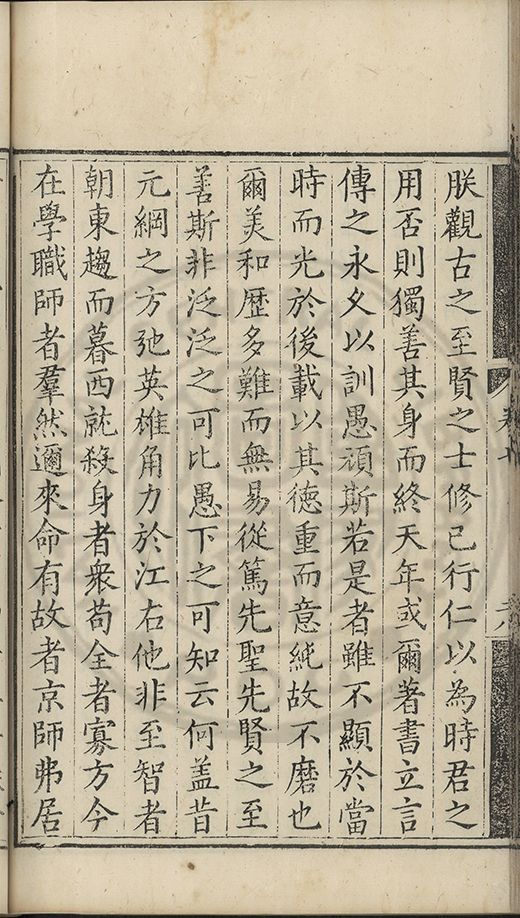 朕觀古之至賢之士修己行仁以為時君之
用否則獨善其身而終天年或爾著書立言
傳之永久以訓愚頑斯若是者雖不顯於當
時而光於後載以其徳重而意純故不磨也
爾美和歷多難而無易從篤先聖先賢之至
善斯非泛泛之可比愚下之可知云何盖昔
元綱之方弛英雄角力於江右他非至智者
朝東趨而暮西就殺身者衆苟全者寡方今
在學職師者羣然邇來命有故者京師弗居